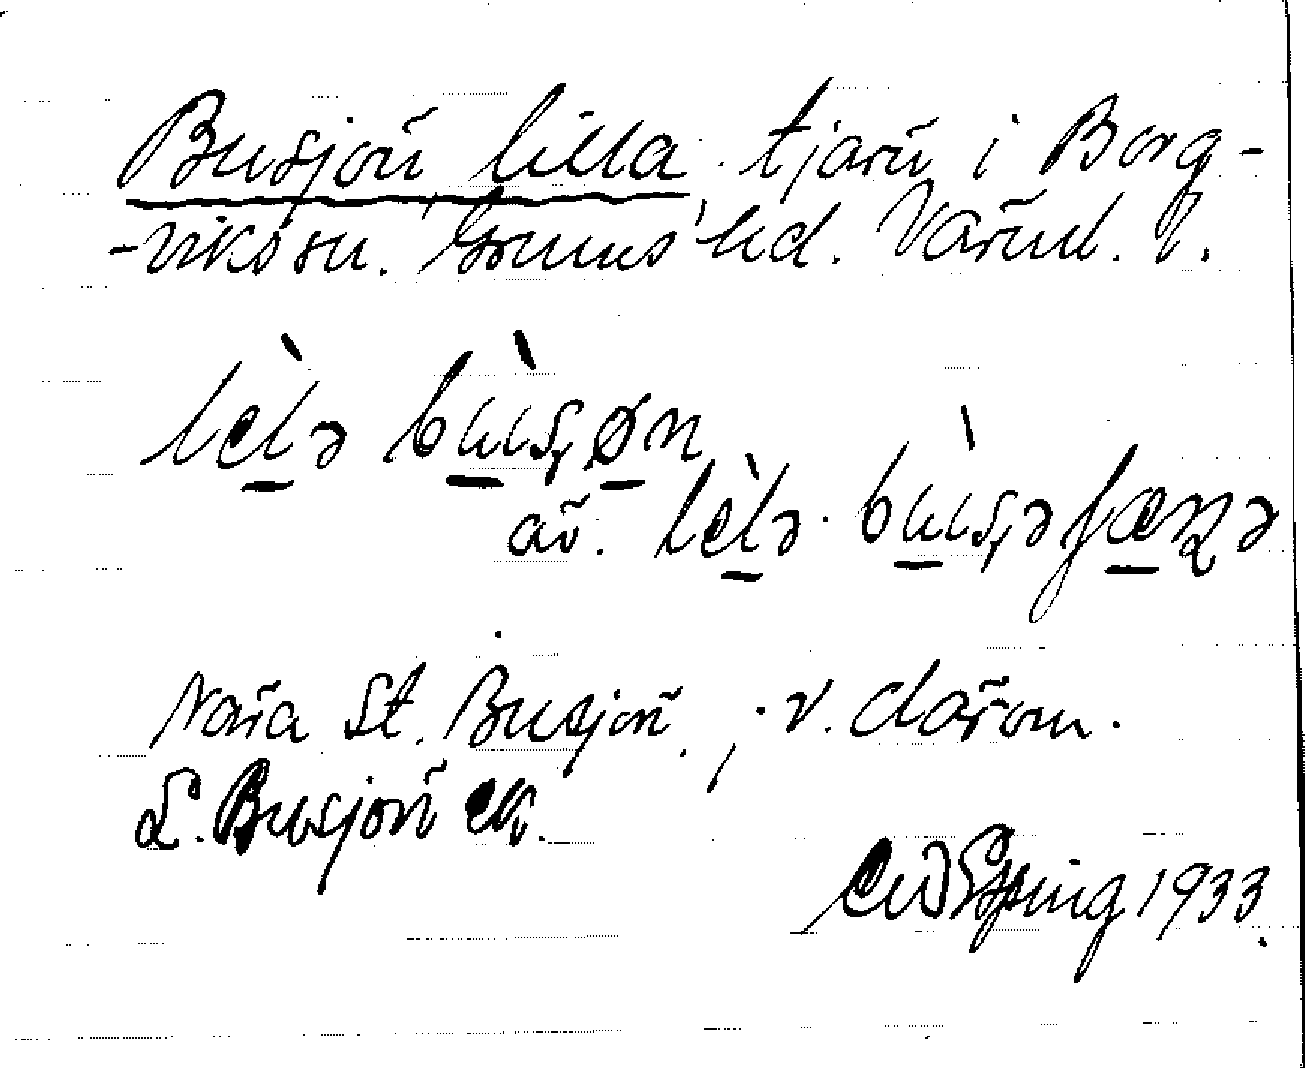 Busjön lilla tjärn i Borg-
-viks sn. Grums hd. Värml. l.
lełə bùsøn
äv. lełə bùsəʃæɳə
Nära St. Busjön, v. därom.
L. Busjön ek.
1933.